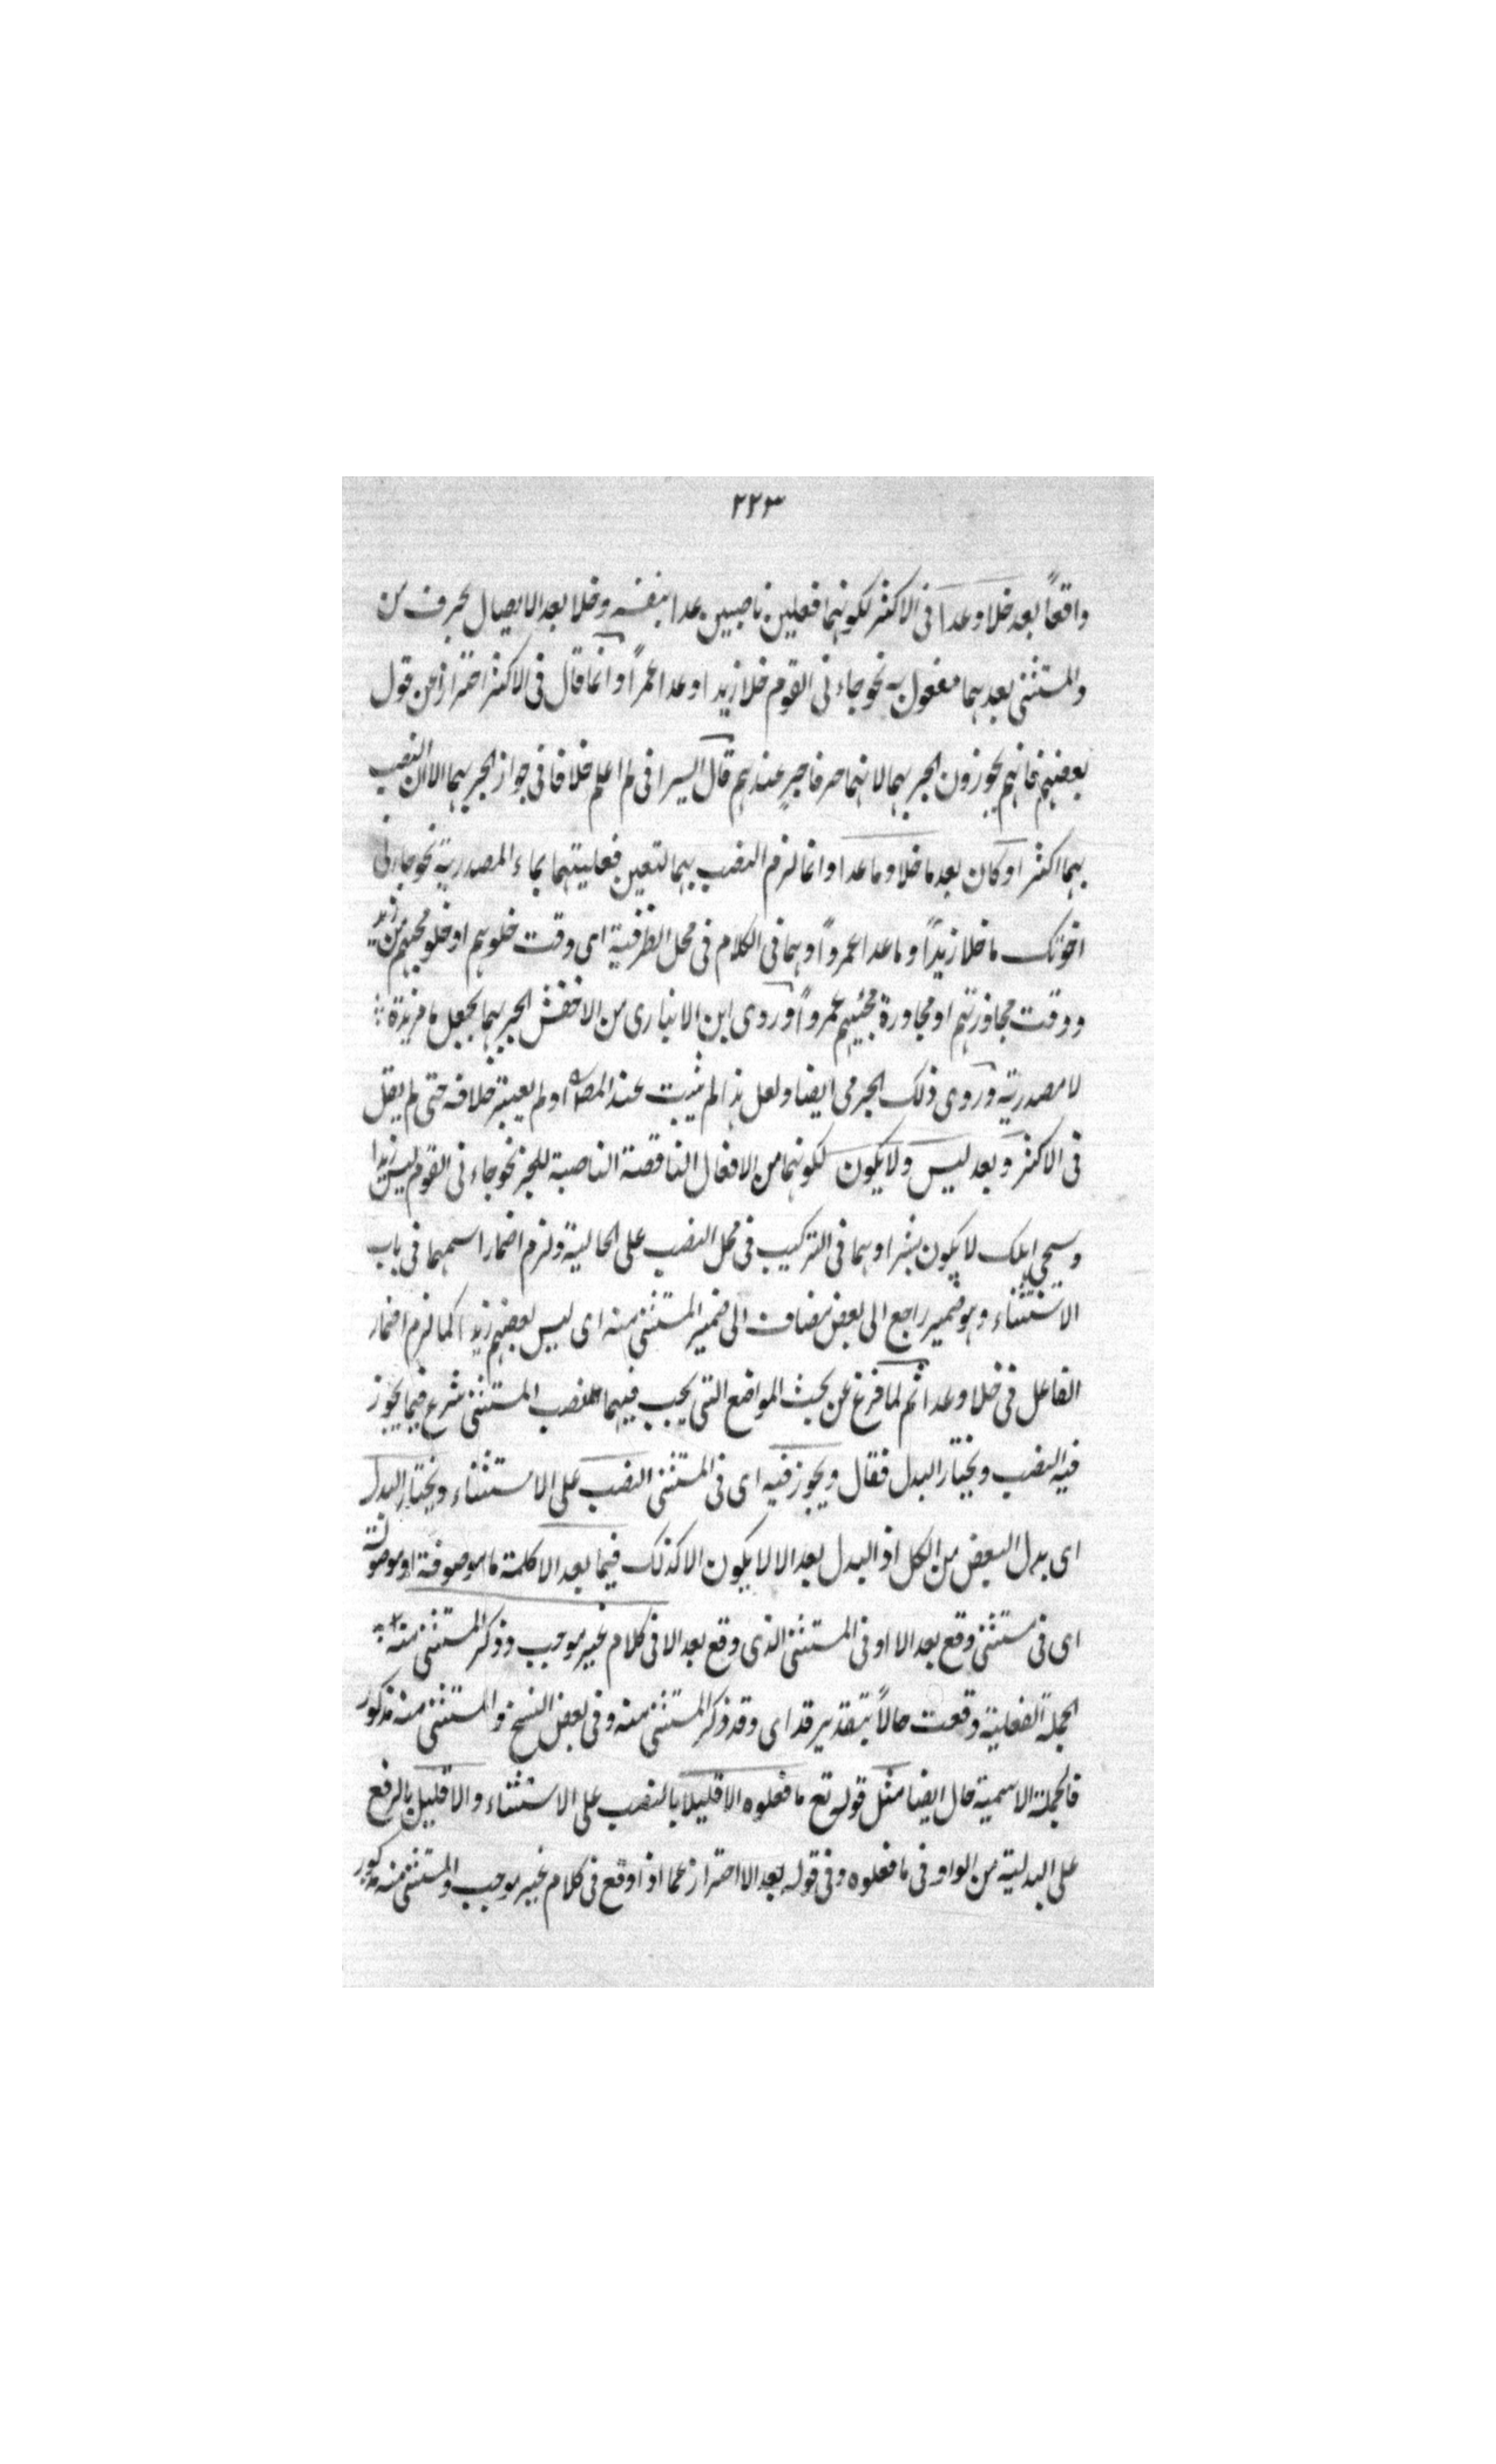 ٢٢٣
واقعاً بعد خلا وعدا فى الاكثر لكونهما فعلين ناصبين عدا بنفسه وخلا بعد الايصال بحرف من
والمستثنى بعدهما مفعول به نحو جاءنى القوم خلا زيدا وعدا عمراً وانما قال فى الاكثر احترازا عن قول
بعضهم فانهم يجوزون الجر بهما لانهما حرفا جر عندهم قال السيرافى لم اعلم خلافا فى جواز الجر بهما الا ان النصب
بهما اكثر او كان بعد ما خلا وما عدا وانما لزم النصب بهما لتعين فعليتهما بماء المصدرية نحو جاءنى
اخوتك ما خلا زيداً وما عدا عمرواً وهما فى الكلام فى محل الظرفية اى وقت خلوهم او خلو مجيئهم من زيد
ووقت مجاوزتهم او مجاورة مجيئهم عمرواً وروى ابن الانبارى من الاخفش الجر بهما بجعل ما مزيدة
لا مصدرية وروى ذلك الجرمى ايضا ولعل هذا لم يثبت عند المصـ او لم يعتبر خلافه حتى لم يقل
فى الاكثر وبعد ليس ولا يكون لكونهما من الافعال الناقصة الناصبة للخبر نحو جاءنى القوم ليس زيدا
وسيجى اهلك لا يكون بشرا وهما فى التركيب فى محل النصب على الحالية ولزم اضمار اسمهما فى باب
الاستثناء وهو ضمير راجع الى بعض مضاف الى ضمير المستثنى منه اى ليس بعضهم زيدا كما لزم اضمار
الفاعل فى خلا وعدا ثم لما فرغ عن بحث المواضع التى يجب فيها نصب المستثنى شرع فيما يجوز
فيه النصب ويختار البدل فقال ويجوز فيه اى فى المستثنى النصب على الاستثناء ويختار البدل
اى بدل البعض من الكل اذ البدل بعد الا لا يكون الا كذلك فيما بعد الا كلمة ما موصوفة او موصولة
اى فى مستثنى وقع بعد الا او فى المستثنى الذى وقع بعد الا فى كلام غير موجب وذكر المستثنى منه
الجملة الفعلية وقعت حالاً بتقدير قد اى وقد ذكر المستثنى منه وفى بعض النسخ والمستثنى منه مذكور
فالجملة الاسمية حال ايضا مثل قوله تع ما فعلوه الا قليلا بالنصب على الاستثناء والا قليل بالرفع
على البدلية من الواو فى ما فعلوه وفى قوله بعد الا احتراز عما اذا وقع فى كلام غير موجب والمستثنى منه مذكور